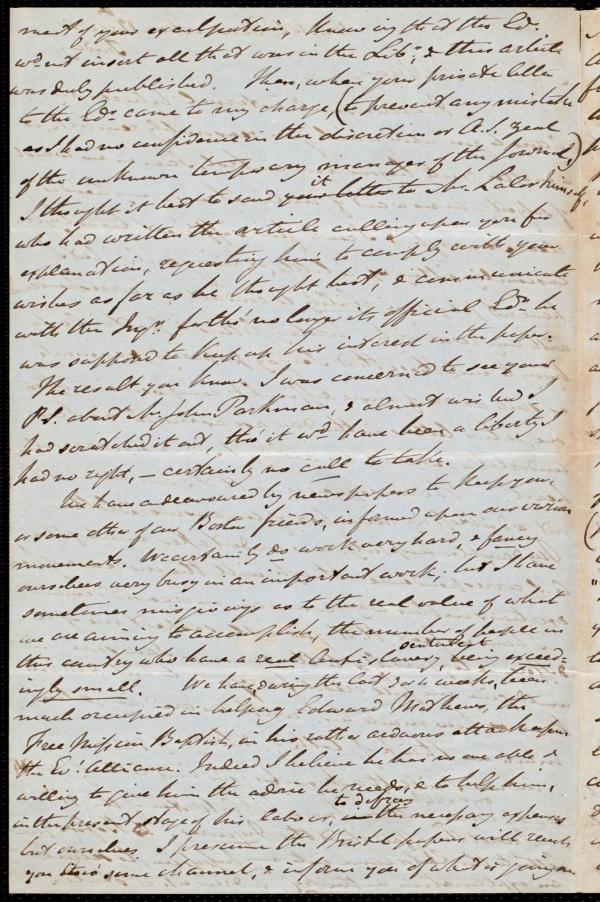 ment of your exculpation, knowing that this Ed.
wd. not insert all that was in the Libr., & this article
was duly published. Then, when your private letter
to the Edr. came to my charge, (to prevent any mistake
as I had no confidence in the discretion or A.S. zeal
of the unknown temporary manager of the Journal,)
I thought it best to send it to Mr. Labor himself,
who had written the article calling upon you for
explanation, requesting him to comply with your
wishes as far as he thought best, & communicate
with the Inqr. for tho' no longer its official Edr. he
was supposed to keep up his interest in the paper.
The result you know. I was concerned to see your
P.S. about Mr. John Parkman, & almost wished I
had scratched it out, tho' it wd. have been a liberty I
had no right, – certainly no call to take.
We have endeavoured by newspapers to keep you,
or some other of our Boston friends, informed upon our various
movements. We certainly do work very hard, & fancy
ourselves very busy in an important work, but I have
sometimes misgivings as to the real value of what
we are aiming to accomplish, the number of people in
this country who have a real Anti-slavery sentiment, being exceed-
ingly small. We have, during the last weeks, been
much occupied in helping Edward Mathews, the
Free Mission Baptist, in his rather arduous attack upon
the Evl. Alliance. Indeed I believe he has no one able &
willing to give him the advice he needs, & to help him,
in the present stage of his labours, to defray the necessary expenses
but ourselves. I presume the Bristol papers will reach
you thro' some channel, & inform you of what is going on